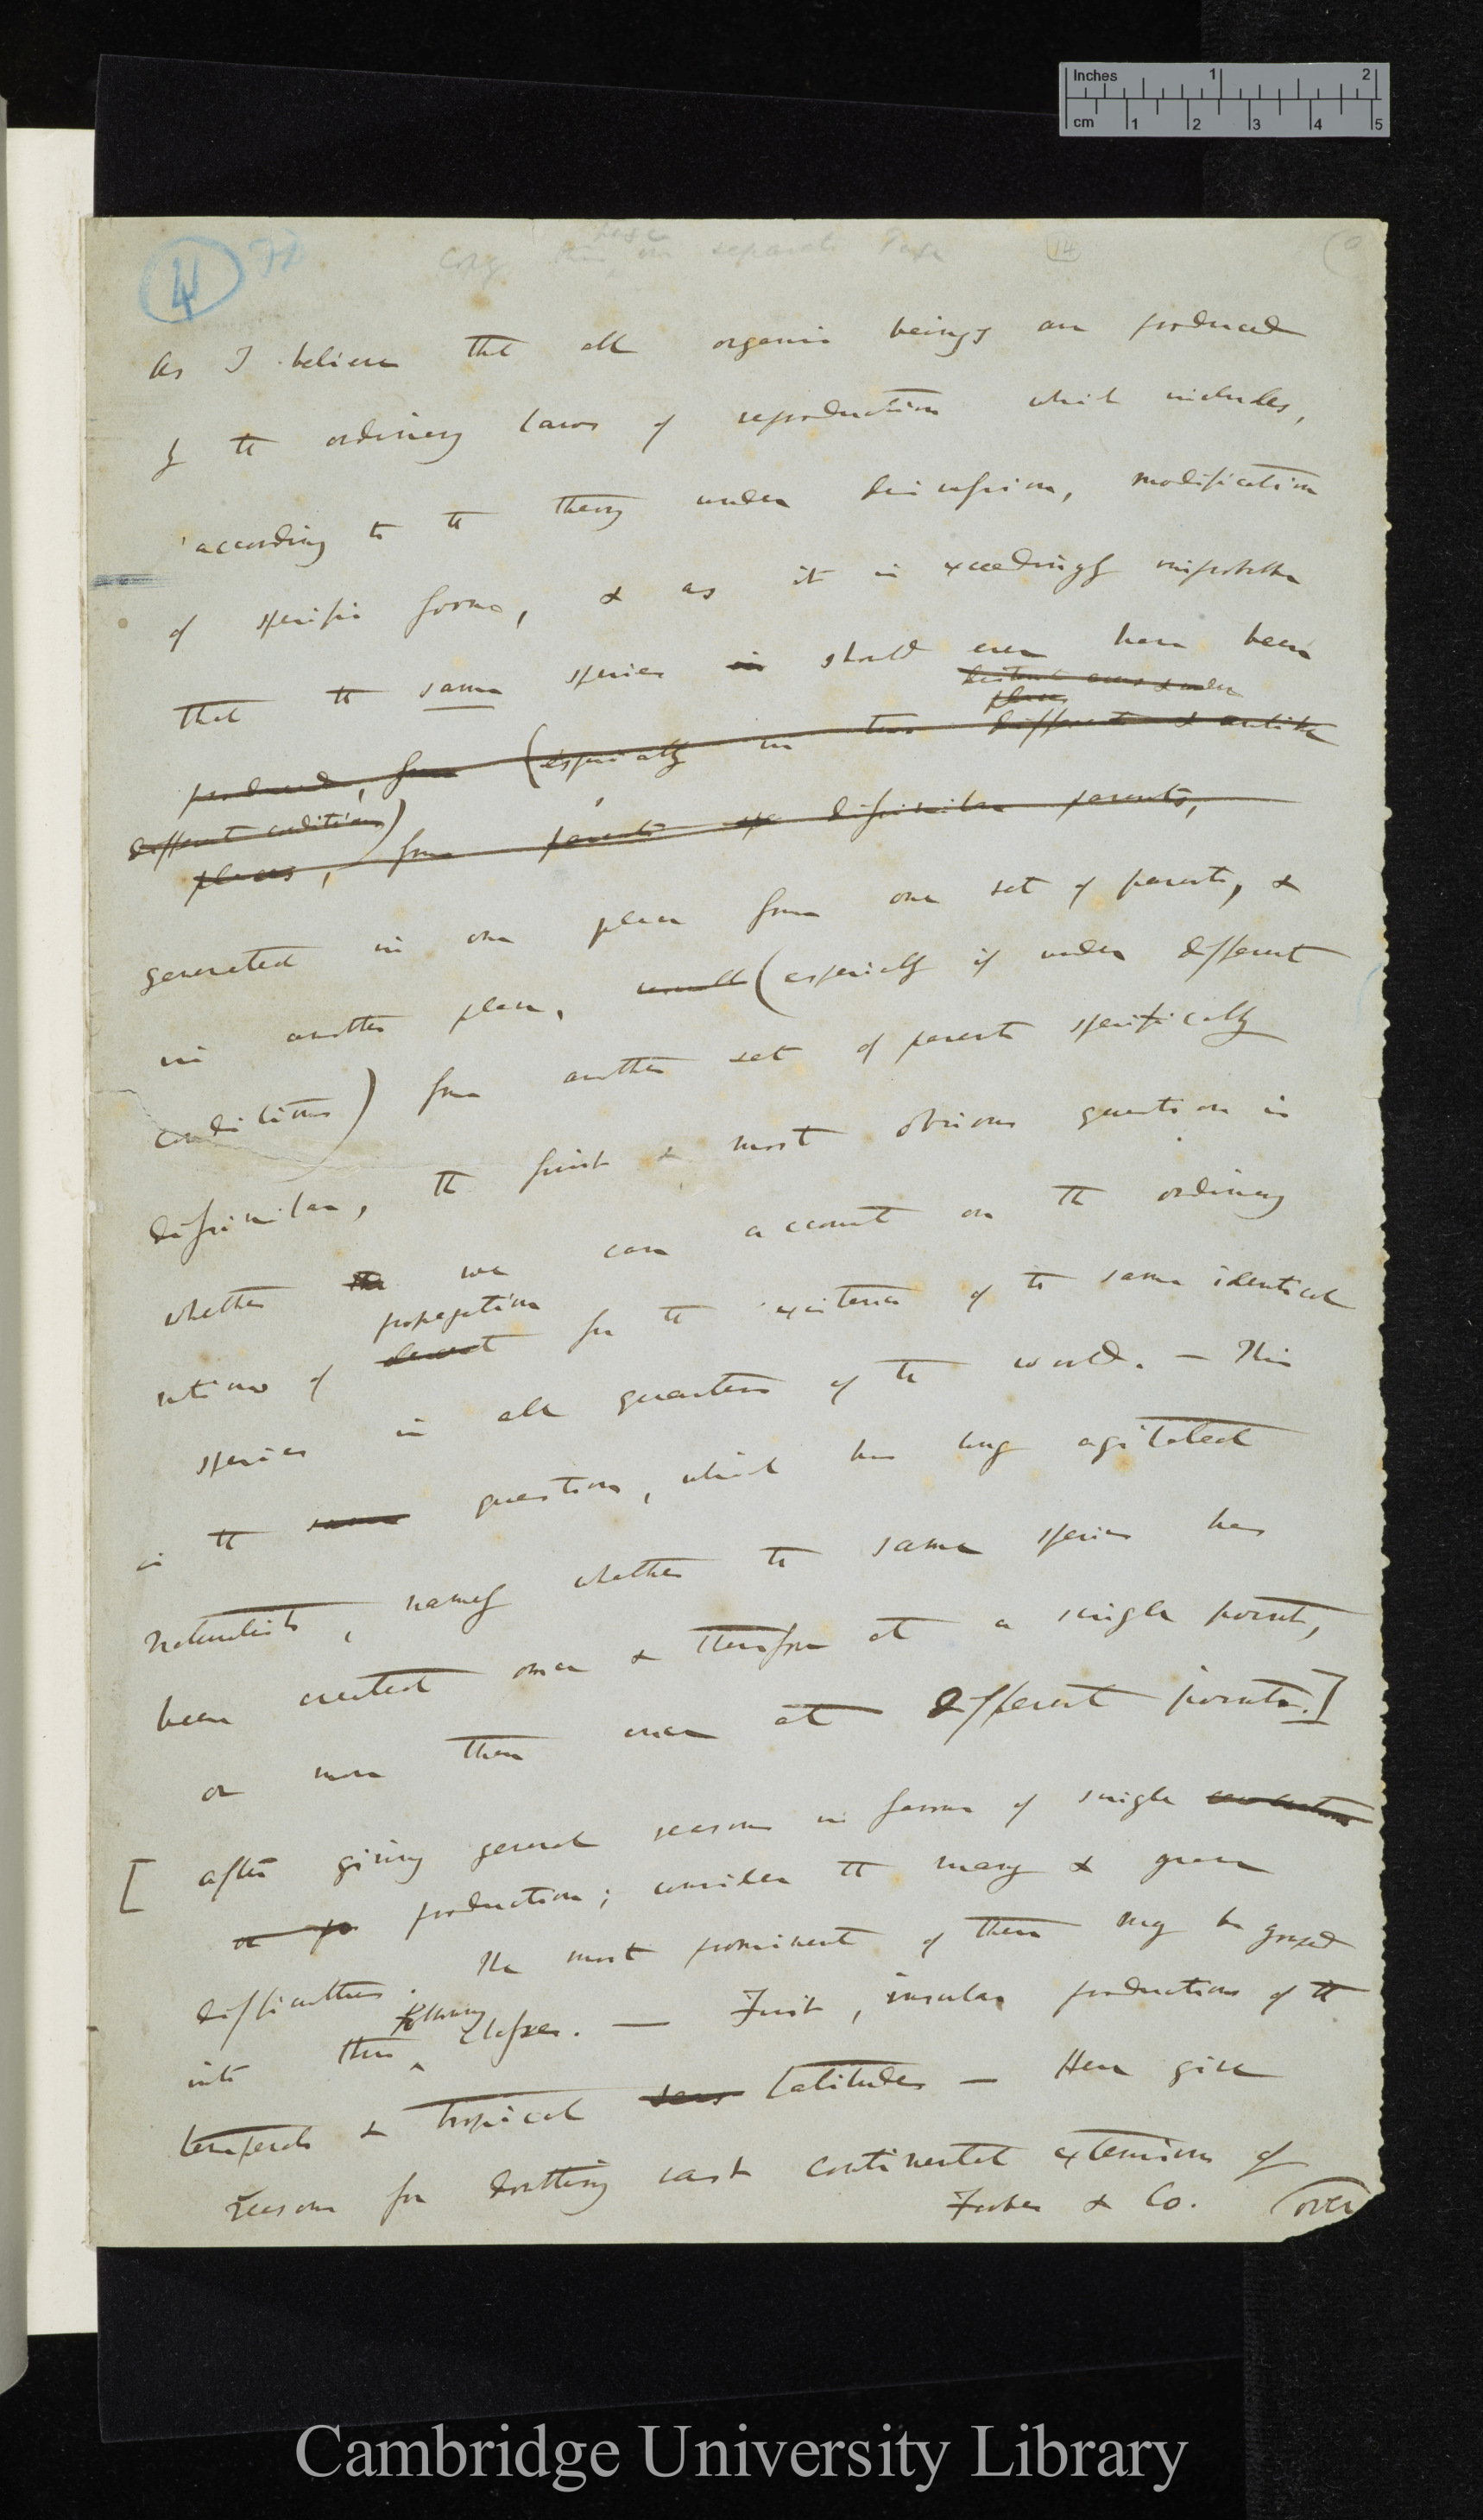 Inches 1 2
cm 1 2 3 4 5
4
Copy this on separate Page
14
As I believe that all organic beings are produced
by the ordinary laws of reproduction which includes,
according to the theory under discussion, modification
of specific forms, & as it is exceedingly improbable
that the same species in should ever have been
distant areas & under
places
produced, from (especially in two different & unlike
different conditions)
places, from parents dissimilar parents,
generated in one place from one set of parents, &
in another place, (especially if under different
conditions) from another set of parents specifically
dissimilar, the first & most obvious question is
whether the we can account on the ordinary
propagation
notions of descent for the existence of the same identical
species in all quarters of the world. — This
is the same question, which has long agitated
naturalists, namely whether the same species has
been created once & therefore at a single point,
or more than once at different points.]
[ After giving general reasons in favour of single
or production; consider the many & grave
difficulties. The most prominent of them may be grouped
following
into three classes. — First, insular productions of the
temperate & tropical seas latitudes — Here give
reasons for doubting vast continental extensions of
Forbes & Co. (over
Cambridge University Library